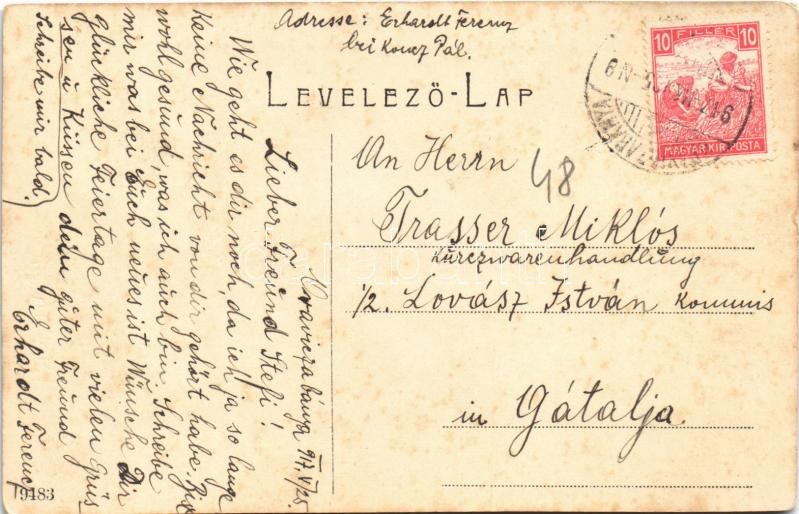 Adresse: Erhardt Ferencz
bei Koncz Pál.
LEVELEZŐ-LAP
10 FILLÉR 10
MAGYAR KIR. POSTA
917
An Herrn
48
Trasser Miklós
Kurczwarenhandlung
1/2. Lovász István Kommis
in Gátalja
Oraviczabánya 917. V/25
Lieber Freund Stefi!
Wie geht es dir noch, da ich ja so lange
Keine Nachricht von dir gehört habe. Bist
wohl gesund, was ich auch bin. Schreibe
mir was bei Euch neues ist. Wünsche Dir
glückliche Feiertage mit vielen Grüs
sen u Küssen dein guter Freund
Erhardt Ferencz
Schreibe mir bald.
19483